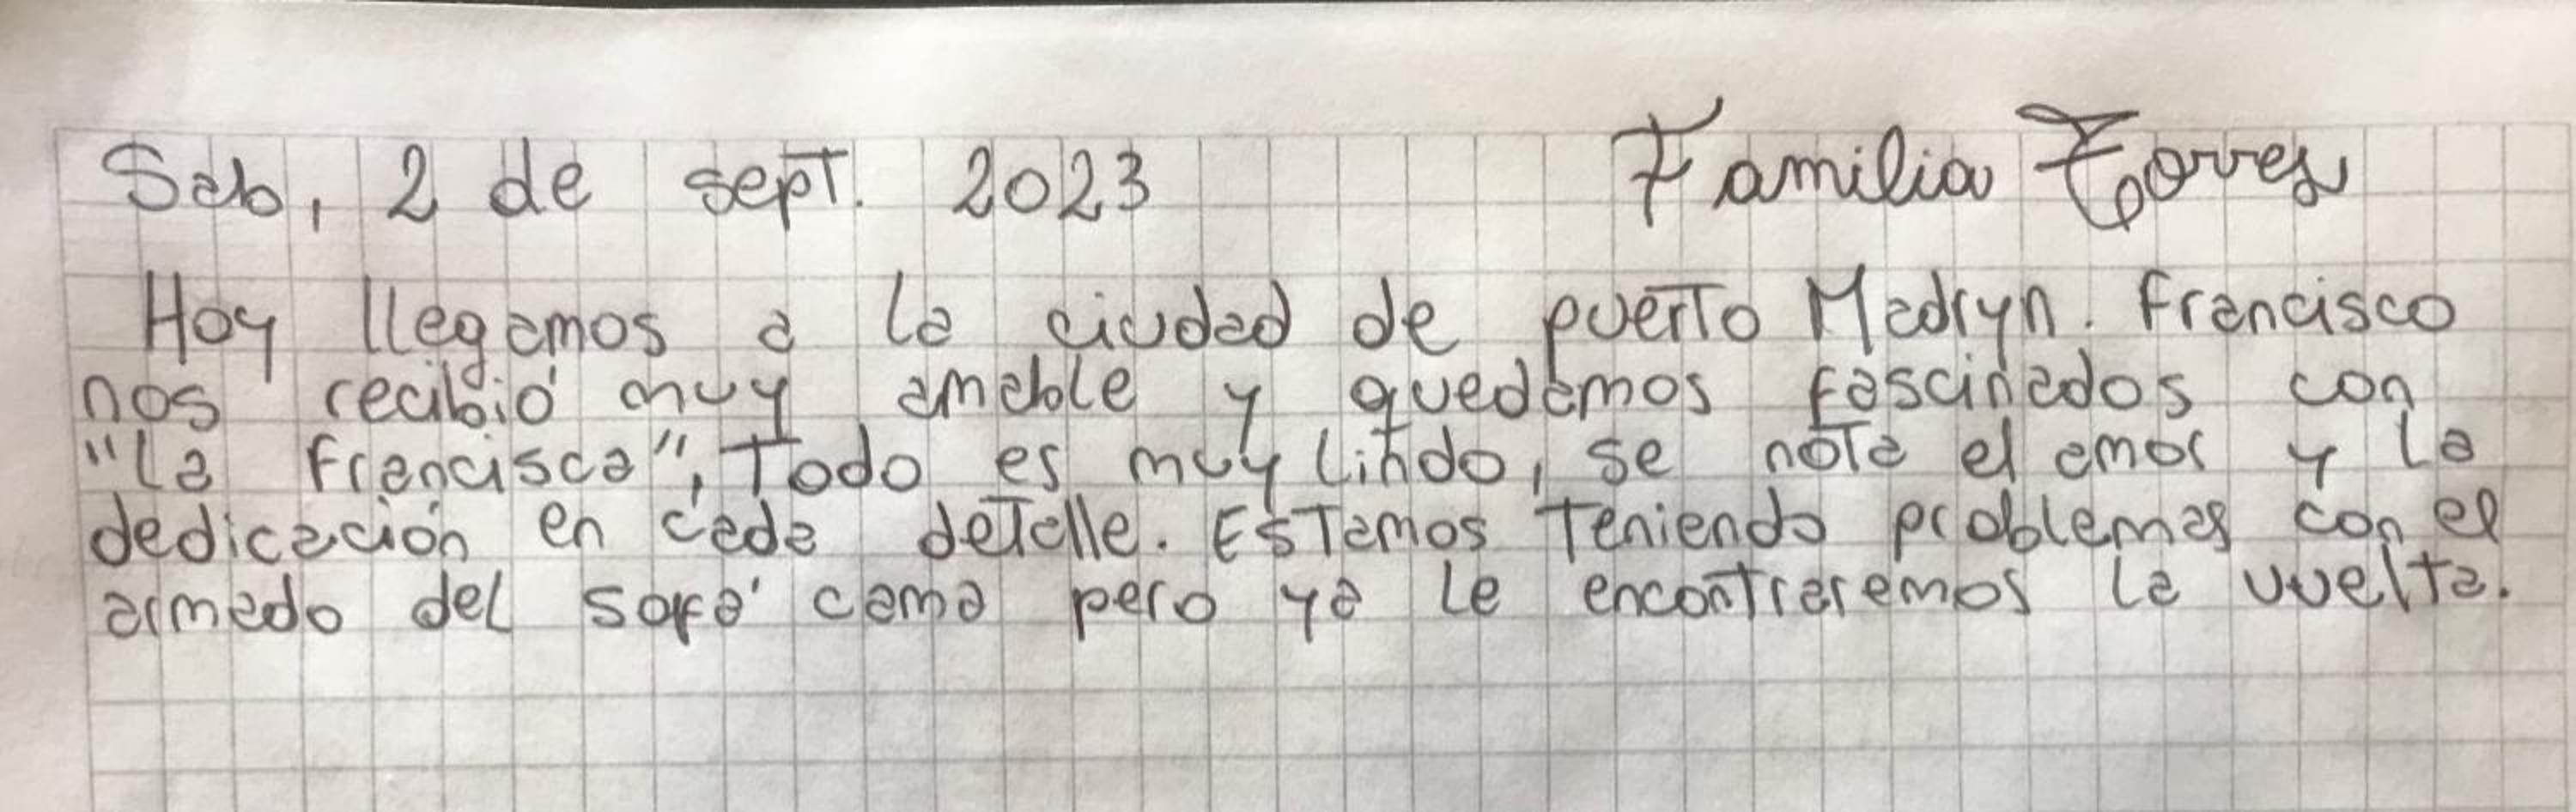 Sab, 2 de sept. 2023 Familia Torres
Hoy llegamos a la ciudad de puerto Madryn. Francisco
nos recibió muy amable y quedamos fascinados con
"La Francisca", Todo es muy lindo, se nota el amor y la
dedicación en cada detalle. Estamos Teniendo problemas con el
armado del sofá cama pero ya le encontraremos la vuelta.